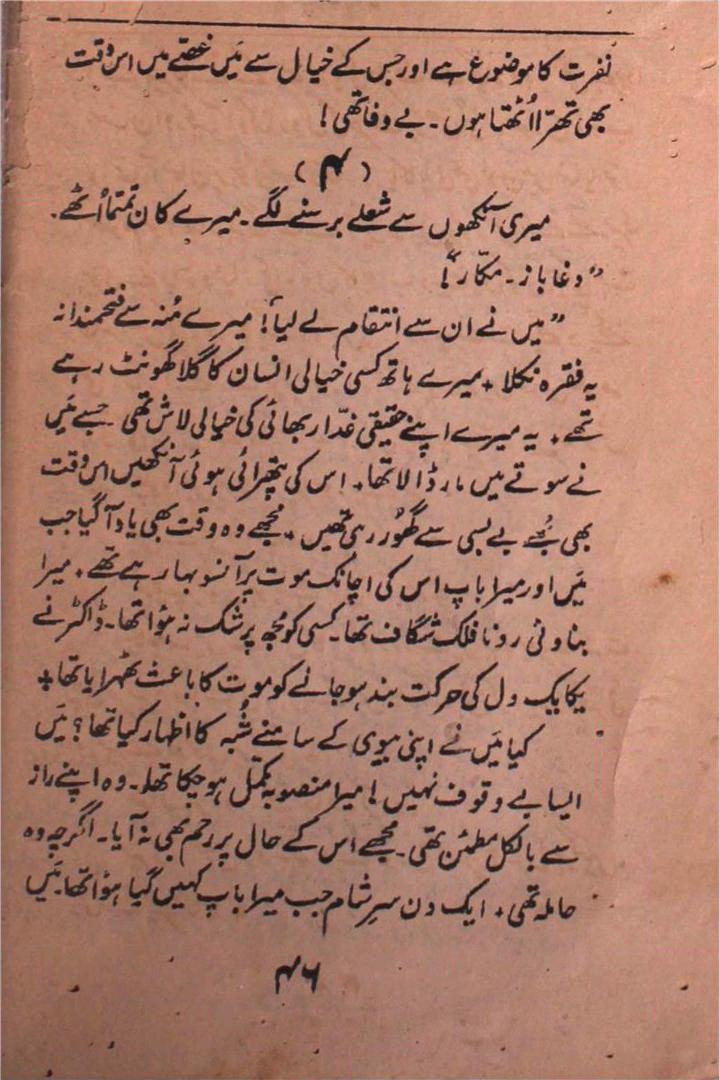 نفرت کا موضوع ہے اور جس کے خیال سے مَیں غصّے میں اس وقت
بھی تھرّا اُٹھتا ہوں۔ بے وفا تھی!
(۴)
میری آنکھوں سے شعلے برسنے لگے۔ میرے کان تمتما اُٹھے۔
"دغا باز۔ مکّار"!
"میں نے ان سے انتقام لے لیا"! میرے مُنہ سے فتحمندانہ
یہ فقرہ نکلا + میرے ہاتھ کسی خیالی انسان کا گلا گھونٹ رہے
تھے + یہ میرے اپنے حقیقی غدّار بھائی کی خیالی لاش تھی۔ جسے مَیں
نے سوتے میں مار ڈالا تھا + اس کی پتھرائی ہوئی آنکھیں اس وقت
بھی مُجھے بے بسی سے گھُور رہی تھیں + مُجھے وہ وقت بھی یاد آ گیا جب
مَیں اور میرا باپ اس کی اچانک موت پر آنسو بہا رہے تھے + میرا
بناوٹی رونا فلک شگاف تھا۔ کسی کو مُجھ پر شک نہ ہوٴا تھا۔ ڈاکٹر نے
یکایک دل کی حرکت بند ہو جانے کو موت کا باعث ٹھہرایا تھا +
کیا مَیں نے اپنی بیوی کے سامنے شُبہ کا اظہار کیا تھا؟ مَیں
ایسا بے وقوف نہیں! میرا منصوبہ مکمّل ہو چکا تھا۔ وہ اپنے راز
سے بالکل مطمئن تھی۔ مُجھے اس کے حال پر رحم بھی نہ آیا۔ اگرچہ وہ
حاملہ تھی + ایک دن سرِ شام جب میرا باپ کہیں گیا ہوٴا تھا مَیں
۴۶